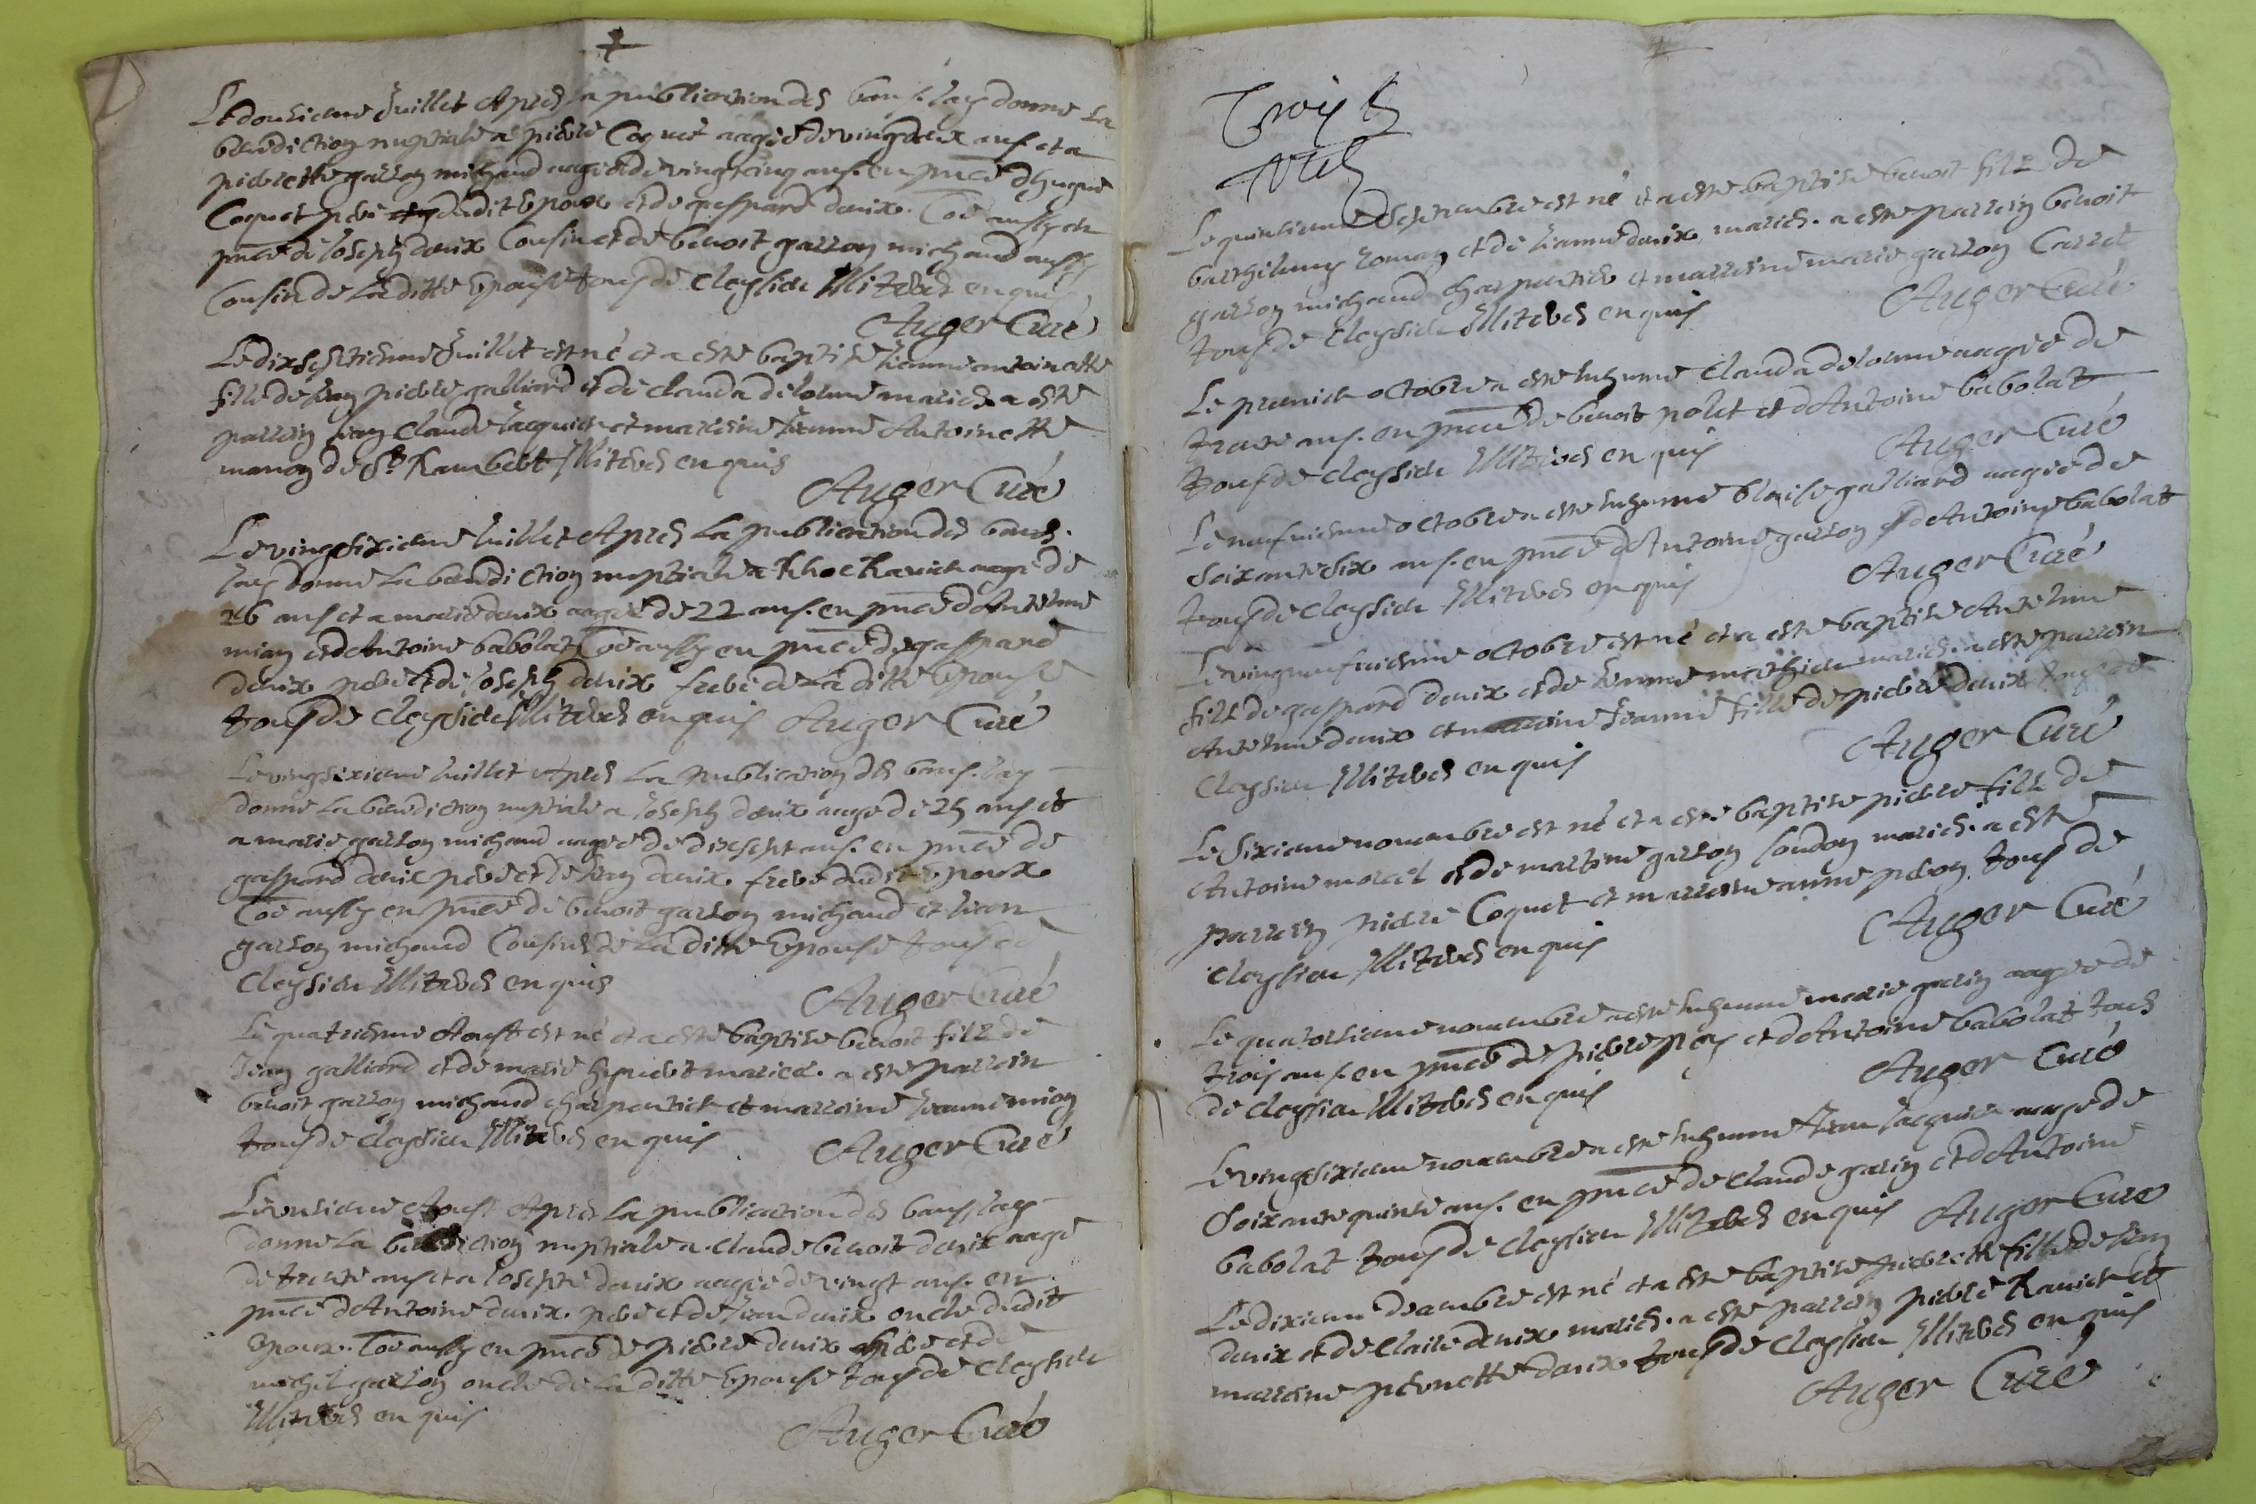 Le dousieme Juillet Apres la publication des bans. Jay donne la
benediction nuptiale a pierre Coquet aagé de vingdeux ans. et a
pierrette garson michaud aagée de vingcinq ans. en pnce d'hugue
Coquet pere dudit epoux et de gaspard danix. Coe aussy en
pnce de Joseph danix Cousin et de benoit garson michaud aussy
Cousin de laditte Epouse tous de Cleysieu Illiteres enquis
Auger Curé
Le dixseptieme Juillet est né et a este baptise Jeanne antoinette
fille de Jean pierre galliard et de Clauda delorme mariés. a este
parrein Jean Claude Jacquier et marreine Jeanne Antoinette
manon de St Rambert Illiteres enquis
Auger Curé
Le vingsixieme Juillet Apres la publication des bans.
Jay donne la benediction nuptiale a Ravier aagé de
26 ans et a marie danix aagée de 22 ans. en pnce d'Antelme
mion et d'Antoine babolat Coe aussy en pnce de gaspard
danix pere et de Joseph danix frere de laditte Epouse
tous de Cleysieu Illiteres enquis Auger Curé
Le vingsixieme Juillet Apres la publication des bans. Jay
donne la benediction nuptiale a Joseph danix aagé de 25 ans et
a marie garson michaud aagée de dixsept ans. en pnce de
gaspard danix pere et de Jean danix frere dudit Epoux
Coe aussy en pnce de benoit garson michaud et Jean
garson michaud Cousins de laditte Epouse tous de
Cleysieu Illiteres enquis
Auger Curé
Le quatrieme Aoust est né et a este baptise benoit fils de
Jean galliard et de marie mariés. a este parrein
benoit garson michaud charpentier et marreine Jeanne mion
tous de Cleysieu Illiteres enquis Auger Curé
Le onsieme Aoust Apres la publication des bans Jay
donne la benediction nuptiale a Claude benoit danix aagé
de trente ans et a Josepte danix aagée de vingt ans. en
pnce d'Antoine danix pere et de Jean danix oncle dudit
Epoux. Coe aussy en pnce de pierre danix pere et de
michel garson oncle de laditte Epouse tous de Cleysieu
Illiteres enquis
Auger Curé
Trois
Le quinsieme Septembre est né et a este baptise benoit fils de
barthelemy Roman et de Jeanne danix mariés. a este parrein benoit
garson michaud charpentier et marreine marie garson Carret
tous de Cleysieu Illiteres enquis
Auger Curé
Le premier octobre a este Inhumé Clauda delorme aagée de
trente ans. en pnce de benoit polet et d'Antoine babolat
tous de Cleysieu Illiteres enquis
Auger Curé
Le neufvieme octobre a este Inhumé blaise galliard aagé de
Soixantesix ans. en pnce d'Antoine garson et d'Antoine babolat
tous de Cleysieu Illiteres enquis
Auger Curé
Le vingneufvieme octobre est né et a este baptise Antelme
fils de gaspard danix et de Jeanne mathieu mariés. a este parrein
Antelme danix et marreine Jeanne fille de pierre danix tous de
Cleysieu Illiteres enquis
Auger Curé
Le Sixieme novembre est né et a este baptise pierre fils de
Antoine morel et de martine garson mariés. a este
parrein pierre Coquet et marreine anne peron tous de
Cleysieu Illiteres enquis
Auger Curé
Le quatorsieme novembre a este Inhumé marie garin aagée de
trois ans. en pnce de pierre pey et d'Antoine babolat tous
de Cleysieu Illiteres enquis
Auger Curé
Le vingsixieme novembre a este Inhumé Jean Jacquier aagé de
Soixantequinse ans. en pnce de Claude garin et d'Antoine
babolat tous de Cleysieu Illiteres enquis Auger Curé
Le dixieme decembre est né et a este baptise pierrette fille de Jean
danix et de Claire danix mariés. a este parrein pierre Ravier et
marreine pernette danix tous de Cleysieu Illiteres enquis
Auger Curé